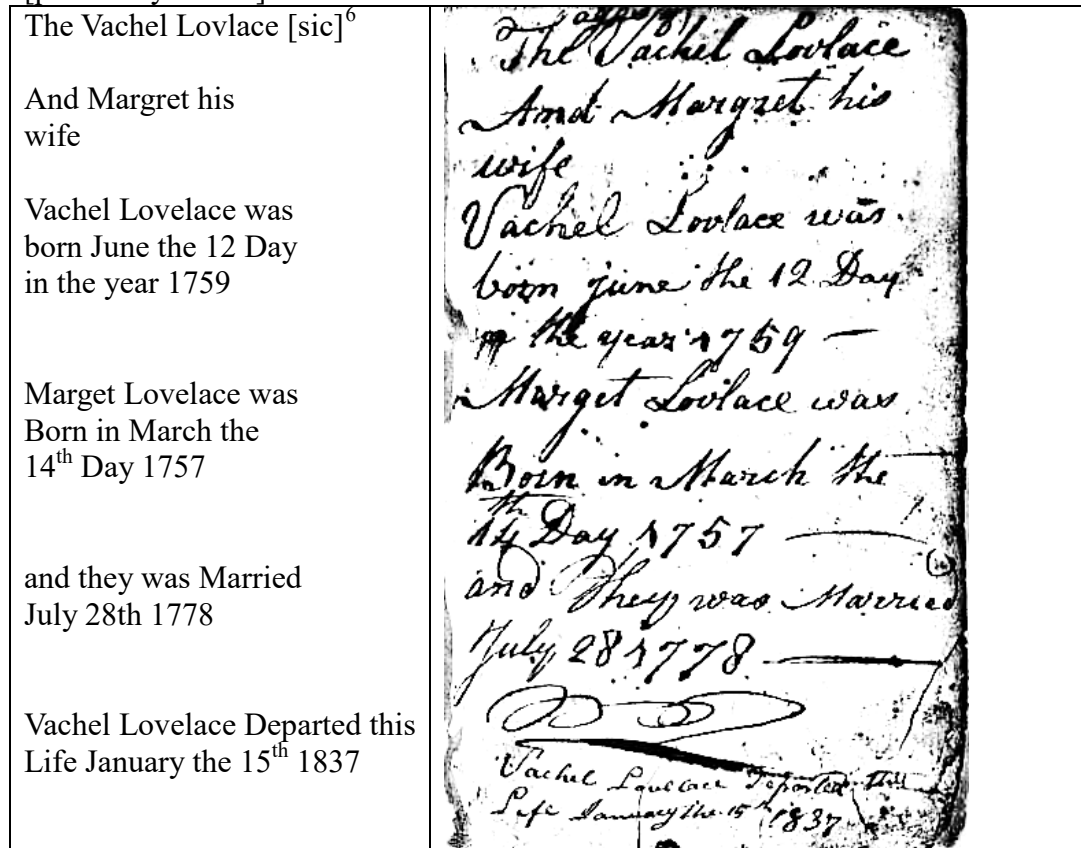 The Vachel Lovlace [sic]6
And Margret his
wife
Vachel Lovelace was
born June the 12 Day
in the year 1759
Marget Lovelace was
Born in March the
14th Day 1757
and they was Married
July 28th 1778
Vachel Lovelace Departed this
Life January the 15th 1837
The Vachel Lovlace
And Margret his
wife
Vachel Lovlace was
born june the 12 Day
the year 1759
Marget Lovlace was
Born in March the
14th Day 1757
and they was Married
July 28 1778
Vachel Lovelace Departed this
Life January the 15 1837